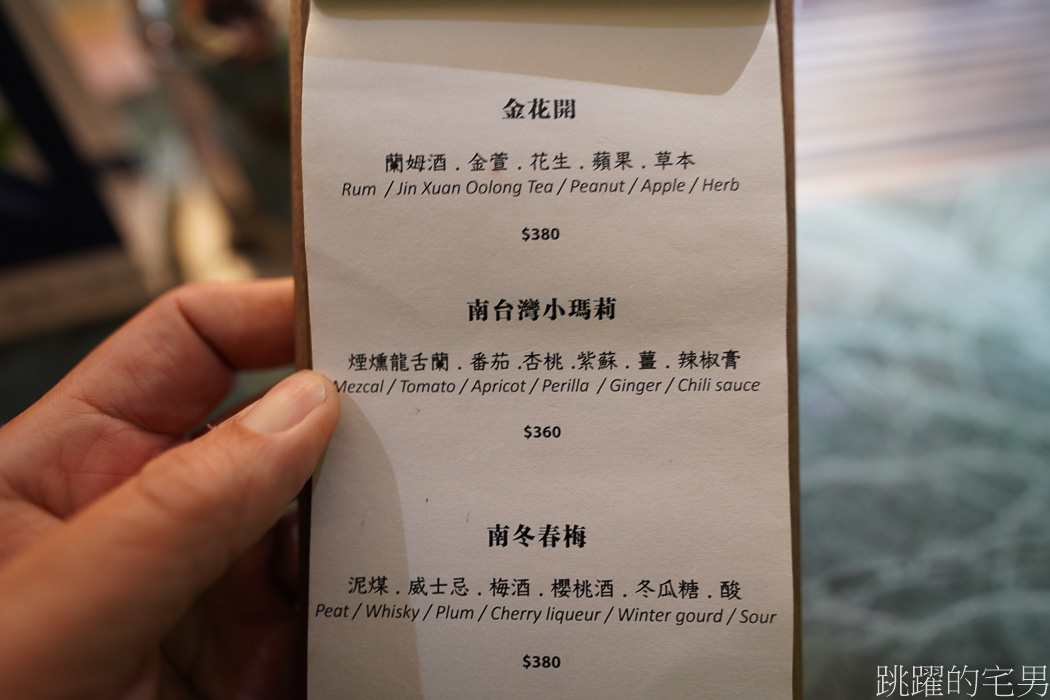 金花開
蘭姆酒 . 金萱 . 花生 . 蘋果 . 草本
Rum / Jin Xuan Oolong Tea / Peanut / Apple / Herb
$380
南台灣小瑪莉
煙燻龍舌蘭 . 番茄 .杏桃 .紫蘇 . 薑 . 辣椒膏
Mezcal / Tomato / Apricot / Perilla / Ginger / Chili sauce
$360
南冬春梅
泥煤 . 威士忌 . 梅酒 . 櫻桃酒 . 冬瓜糖 . 酸
Peat / Whisky / Plum / Cherry liqueur / Winter gourd / Sour
$380
跳躍的宅男